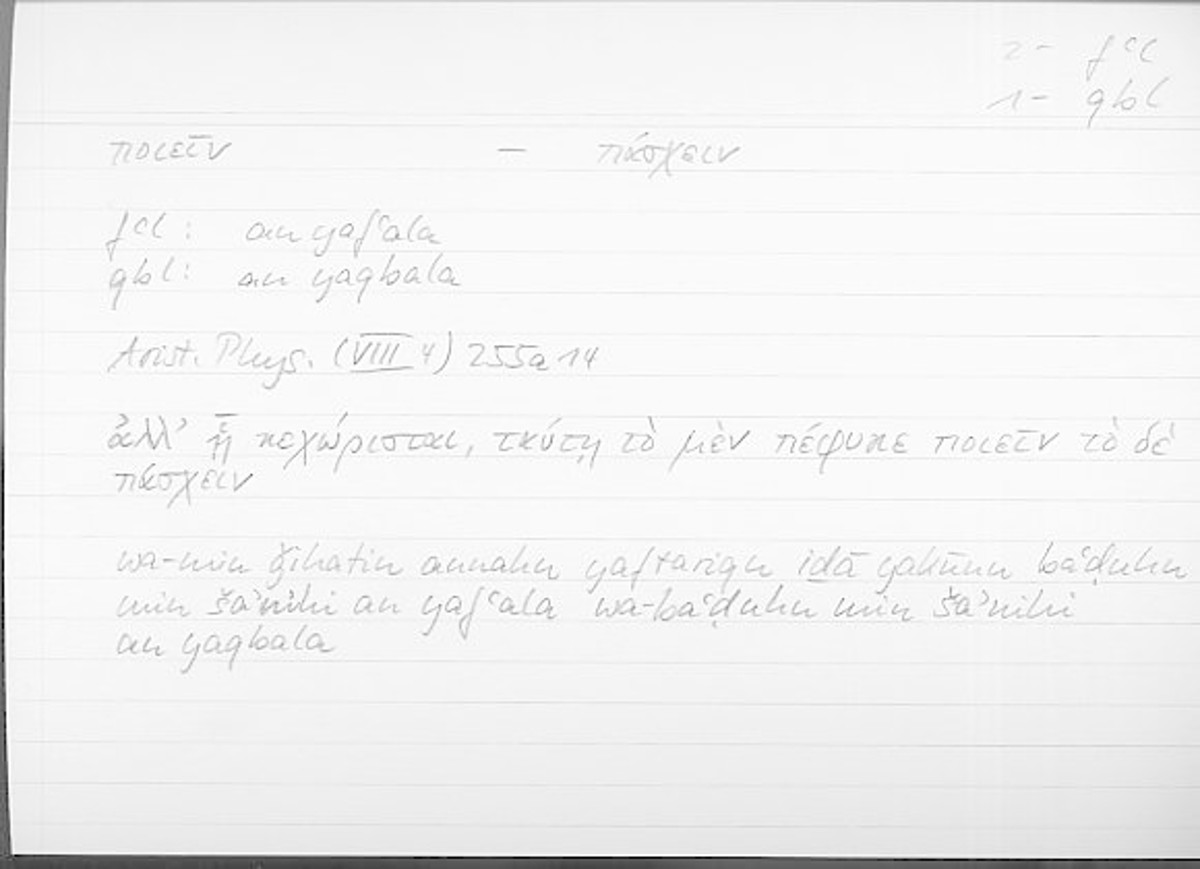 2- fʿl
1- qbl
ποιεῖν — πάσχειν
fʿl: an yafʿala
qbl: an yaqbala
Arist. Phys. (VIII 4) 255a 14
ἀλλ' ᾗ κεχώρισται, ταύτῃ τὸ μὲν πέφυκε ποιεῖν τὸ δὲ
πάσχειν
wa-min ǧihatin annahu yaftariqu iḏā yakūnu baʿḍuhu
min šaʾnihi an yafʿala wa-baʿḍuhu min šaʾnihi
an yaqbala